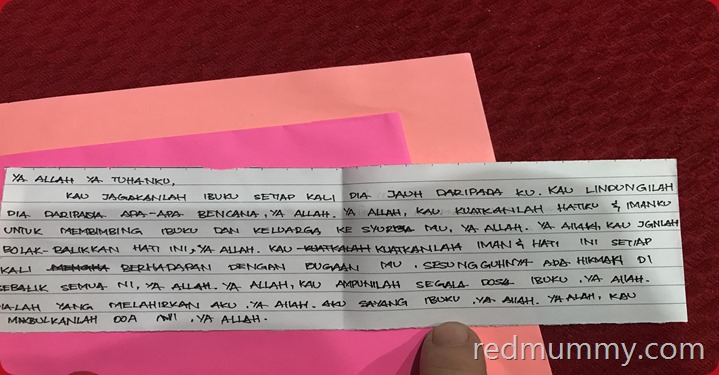 YA ALLAH YA TUHANKU,
KAU JAGAKANLAH IBUKU SETIAP KALI DIA JAUH DARIPADA KU. KAU LINDUNGILAH
DIA DARIPADA APA-APA BENCANA, YA ALLAH. YA ALLAH, KAU KUATKANLAH HATIKU & IMANKU
UNTUK MEMBIMBING IBUKU DAN KELUARGA KE SYURGA MU, YA ALLAH. YA ALLAH, KAU JGNLAH
BOLAK-BALIKKAN HATI INI, YA ALLAH. KAU KUATKALAH KUATKANLAH IMAN & HATI INI SETIAP
KALI BERHADAPAN DENGAN DUGAAN MU. SESUNGGUHNYA ADA HIKMAH DI
SEBALIK SEMUA NI, YA ALLAH. YA ALLAH, KAU AMPUNILAH SEGALA DOSA IBUKU. YA ALLAH.
IALAH YANG MELAHIRKAN AKU. YA ALLAH. AKU SAYANG IBUKU. YA ALLAH. YA ALAH, KAU
MAKBULKANLAH DOA INI, YA ALLAH.
redmummy.com